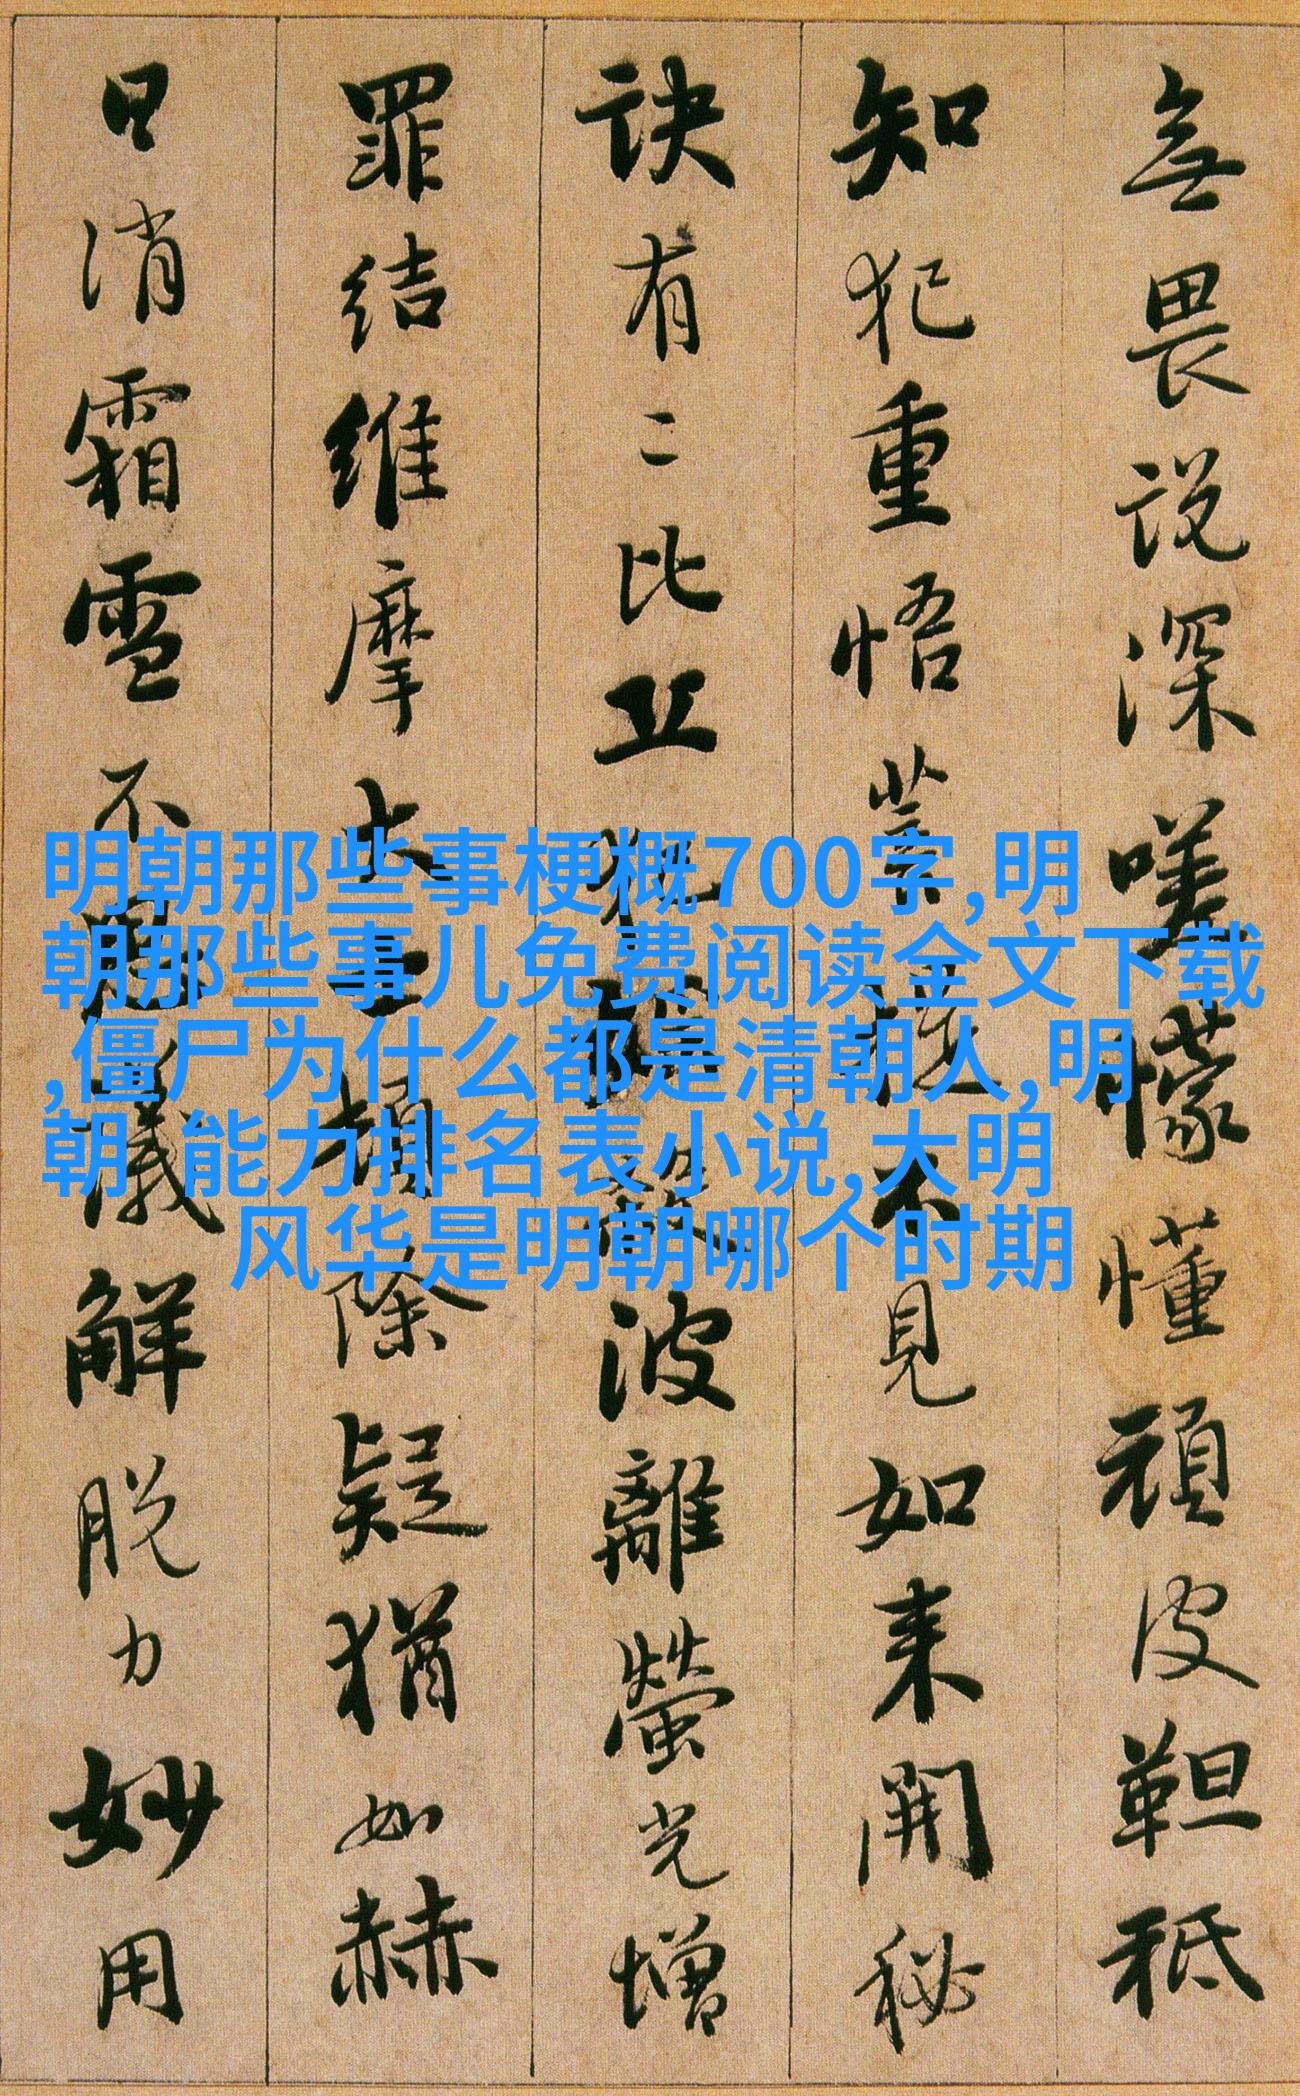 無畏説深嗟懞懂頑皮靼秖
知犯重悟菩提不見如来開秘
訣有二比丘犯婬殺波離螢光增
罪結維摩大士頓除疑猶如赫
日消霜雪不思議解脱力妙用
明朝那些事梗概700字,明
朝那些事儿免费阅读全文下载
,僵尸为什么都是清朝人,明
朝 能力排名表小说,大明
风华是明朝哪个时期